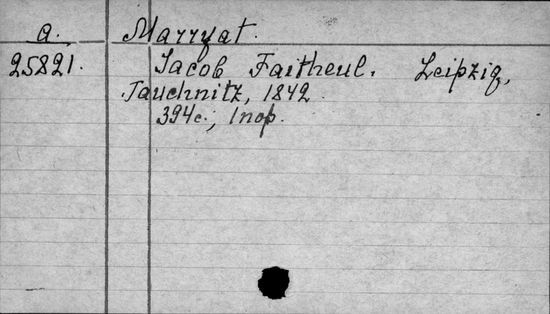 a. Marryat.
25821. Jacob Faitheul. Leipzig,
Tauchnitz, 1842.
394c., 1 nop.